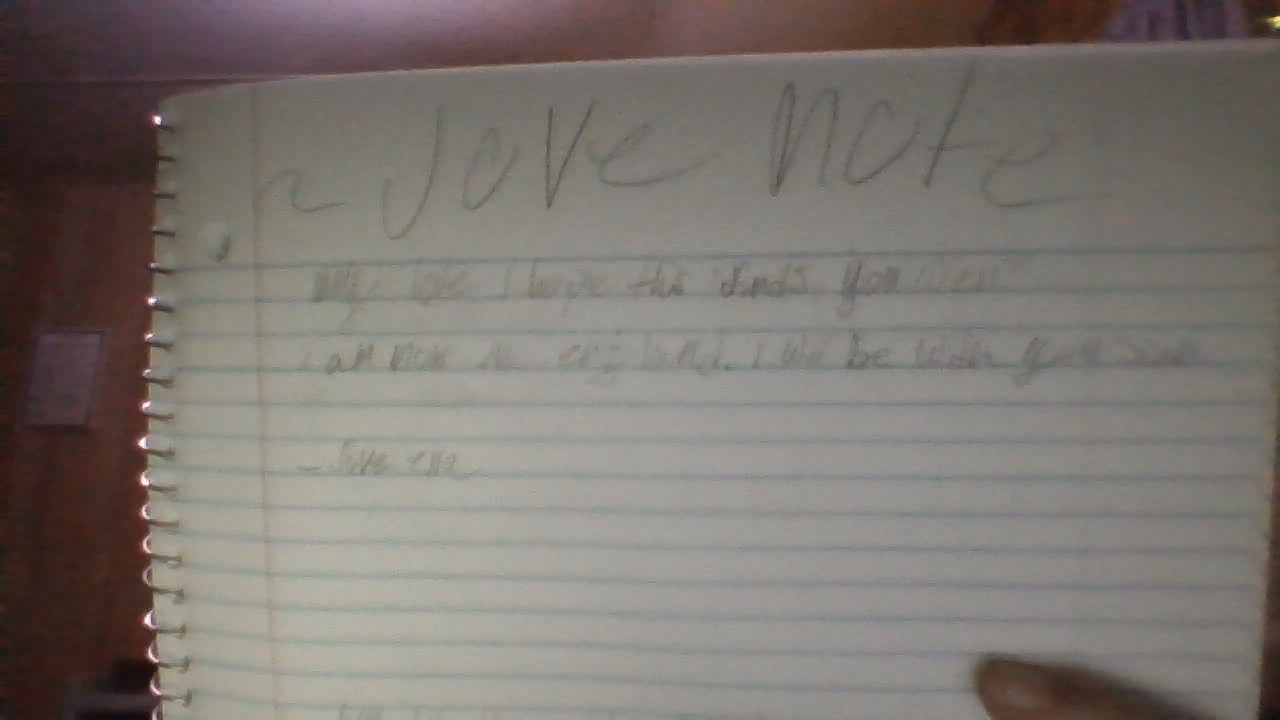 ~ Jove note
My love I hope this finds you well
I am now in england. I will be with you soon
- Jove